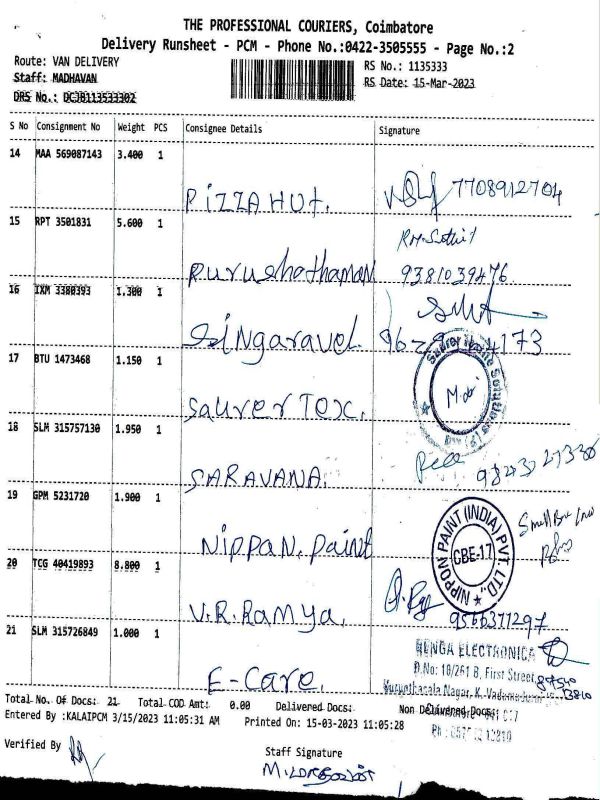 THE PROFESSIONAL COURIERS, Coimbatore
Delivery Runsheet - PCM - Phone No.:0422-3505555 - Page No.:2
Route: VAN DELIVERY
RS No.: 1135333
Staff: MADHAVAN
RS Date: 15-Mar-2023
DRS No.: DCJB113533302
S No Consignment No Weight PCS Consignee Details Signature
14 MAA 569087143 3.400 1
PIZZA HUT. 7708912704
15 RPT 3501831 5.600 1
Purushothaman 9381039476
16 IXM 3380393 1.300 1
Singaravel. 4173
17 BTU 1473468 1.150 1
Saurer Tex.
18 SLM 315757130 1.950 1
SARAVANA.
19 GPM 5231720 1.900 1
NIPPON PAINT (INDIA) PVT. LTD.,
CBE-17
Nippan. paint
20 TCG 40419893 8.800 1
V.R.Ramya. 9566371297
21 SLM 315726849 1.000 1
RENGA ELECTRONICA
D.No: 10/261 B, First Street
E-Care.
Total No. Of Docs: 21 Total COD Amt: 0.00 Delivered Docs: Non Delivered Docs:
Entered By :KALAIPCM 3/15/2023 11:05:31 AM Printed On: 15-03-2023 11:05:28
Verified By
Staff Signature